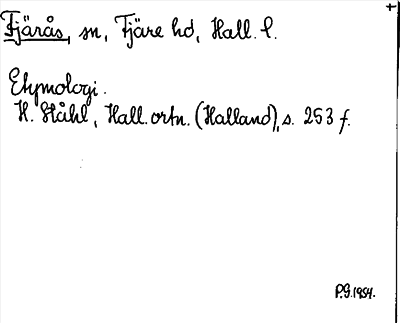 Fjärås, sn, Fjäre hd, Hall. l.
Etymologi.
H. Ståhl, Hall. ortn. (Halland), s. 253 f.
P.G. 1984.